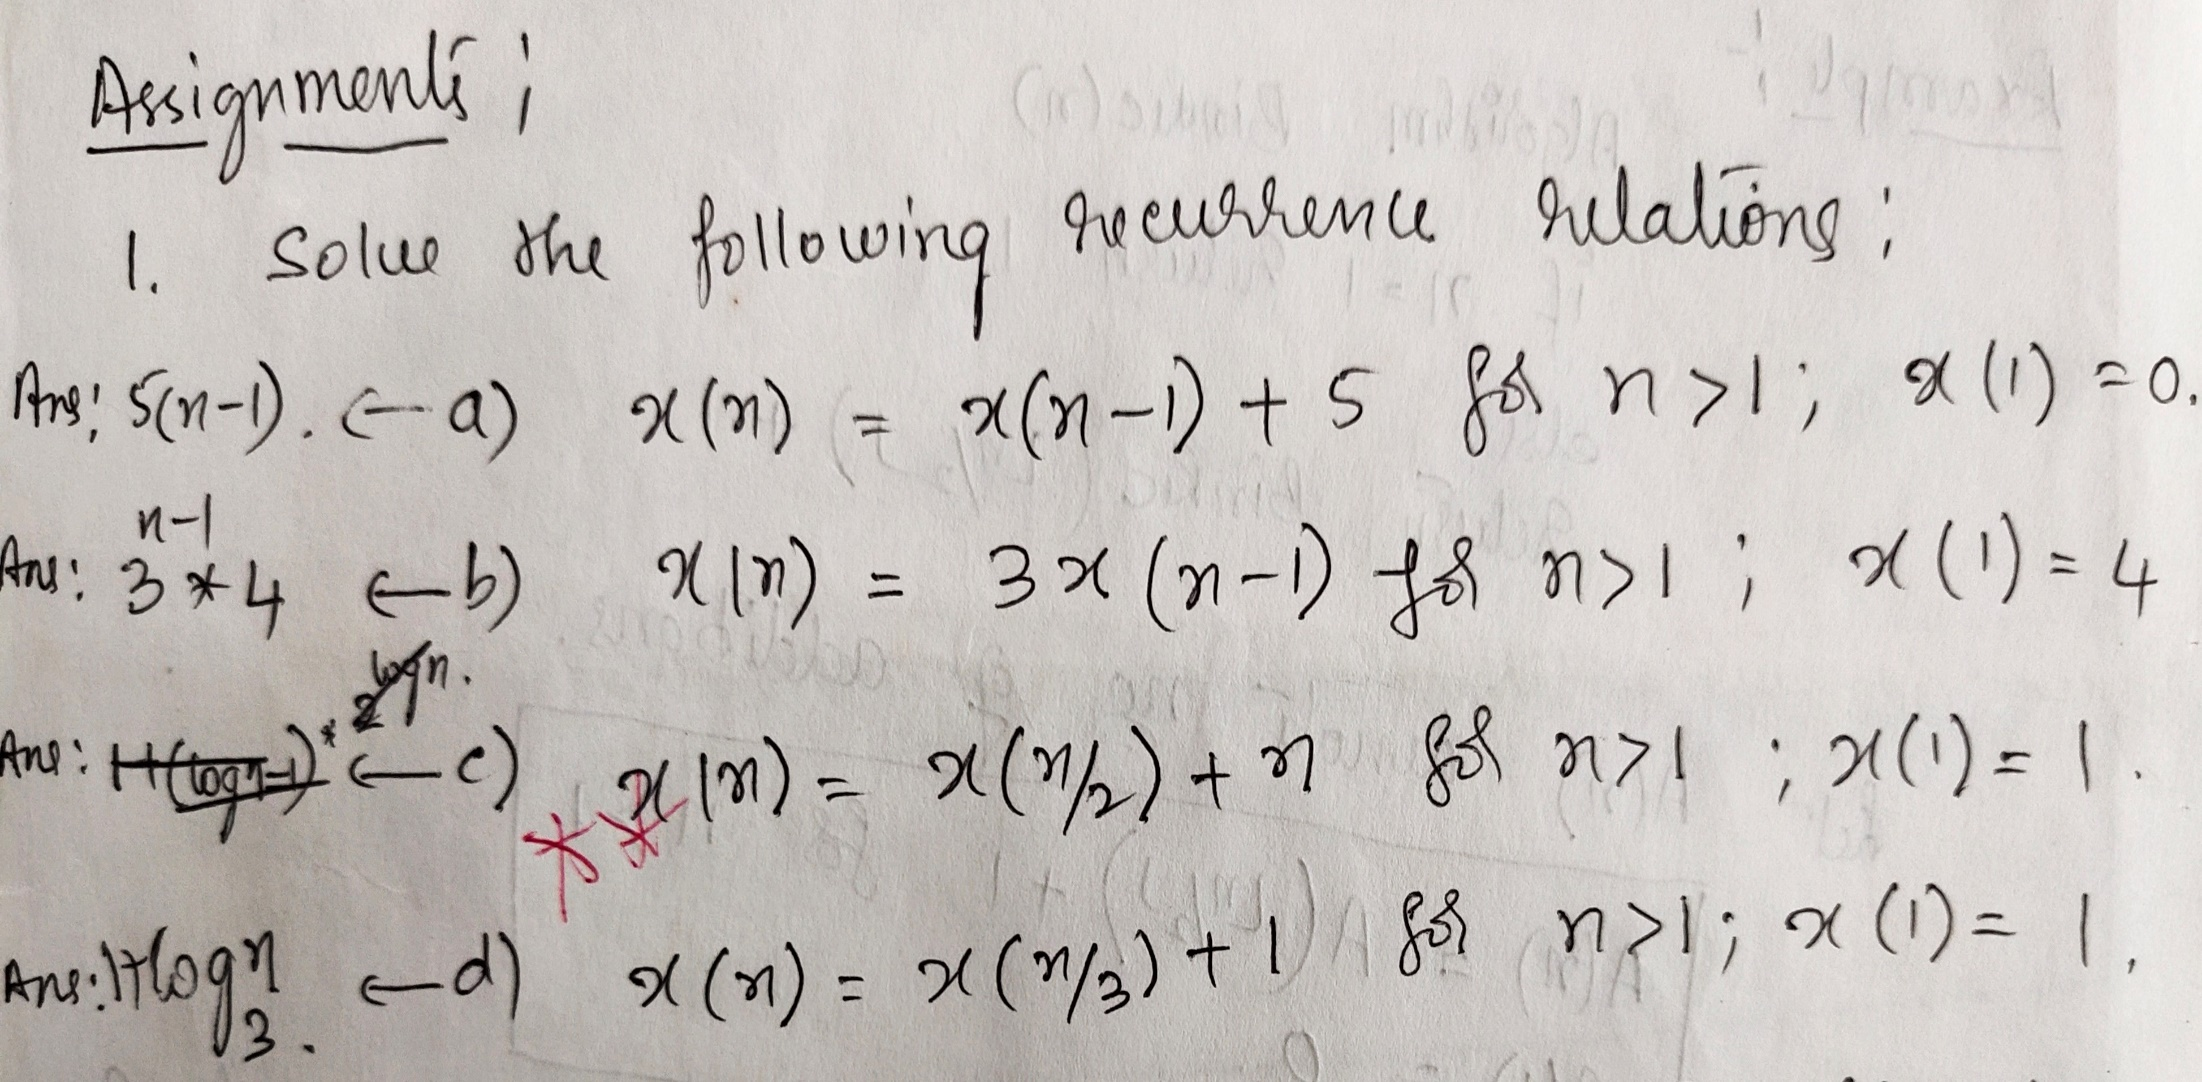 Assignments;
1. Solve the following recurrence relations;
Ans: 5(n-1). ← a) x(n) = x(n-1) + 5 for n>1; x(1) = 0.
Ans: 3^(n-1) * 4 ← b) x(n) = 3x(n-1) for n>1; x(1) = 4
Ans: 1+(log n-1) * 2^(log n). ← c) x(n) = x(n/2) + n for n>1; x(1) = 1.
** 
Ans: 1+log₃n. ← d) x(n) = x(n/3) + 1 for n>1; x(1) = 1.